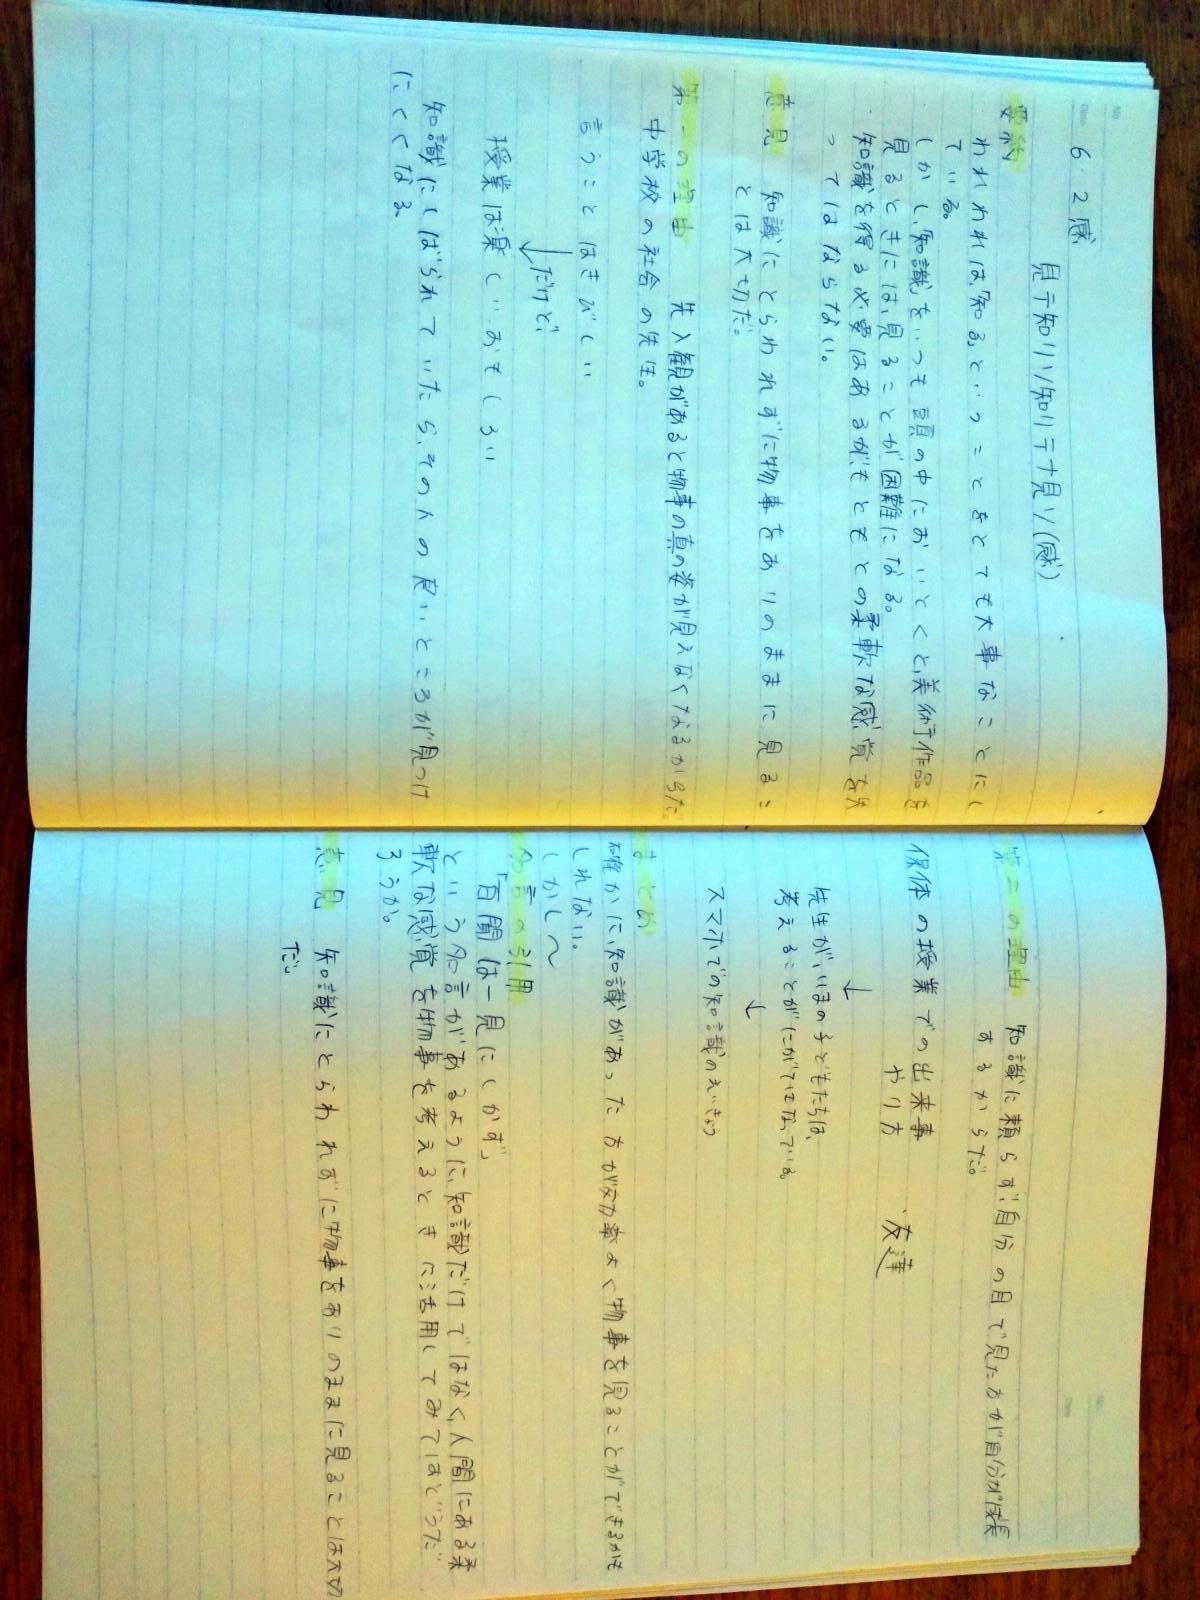 6.2感
見テ知リソ知リテナ見ソ(感)
要約
われわれは、「知る」ということをとても大事なことにし
ている。
しかし、知識をいつも頭の中においとくと、美術作品を
見るときには、見ることが困難になる。
知識を得る必要はあるが、もともとの柔軟な感覚を失
ってはならない。
意見 知識にとらわれずに物事をありのままに見るこ
とは大切だ。
第一の理由 先入観があると物事の真の姿が見えなくなるからだ。
中学校の社会の先生。
言うことはきびしい
↓だけど、
授業は楽しいおもしろい
知識にしばられていたら、その人の良いところが見つけ
にくくなる
第二の理由 知識に頼らず、自分の目で見た方が自分が成長
するからだ。
保体の授業での出来事
やり方 友達
↓
先生が、いまの子どもたちは、
考えることがにがてになっている。
↓
スマホでの知識のえいきょう
まとめ
確かに、知識があった方が効率よく物事を見ることができるかも
しれない。
しかし〜
名言の引用
「百聞は一見にしかず」
という名言があるように、知識だけではなく、人間にある柔
軟な感覚を物事を考えるときに活用してみてはどうだ
ろうか。
意見 知識にとらわれずに物事をありのままに見ることは大切
だ。